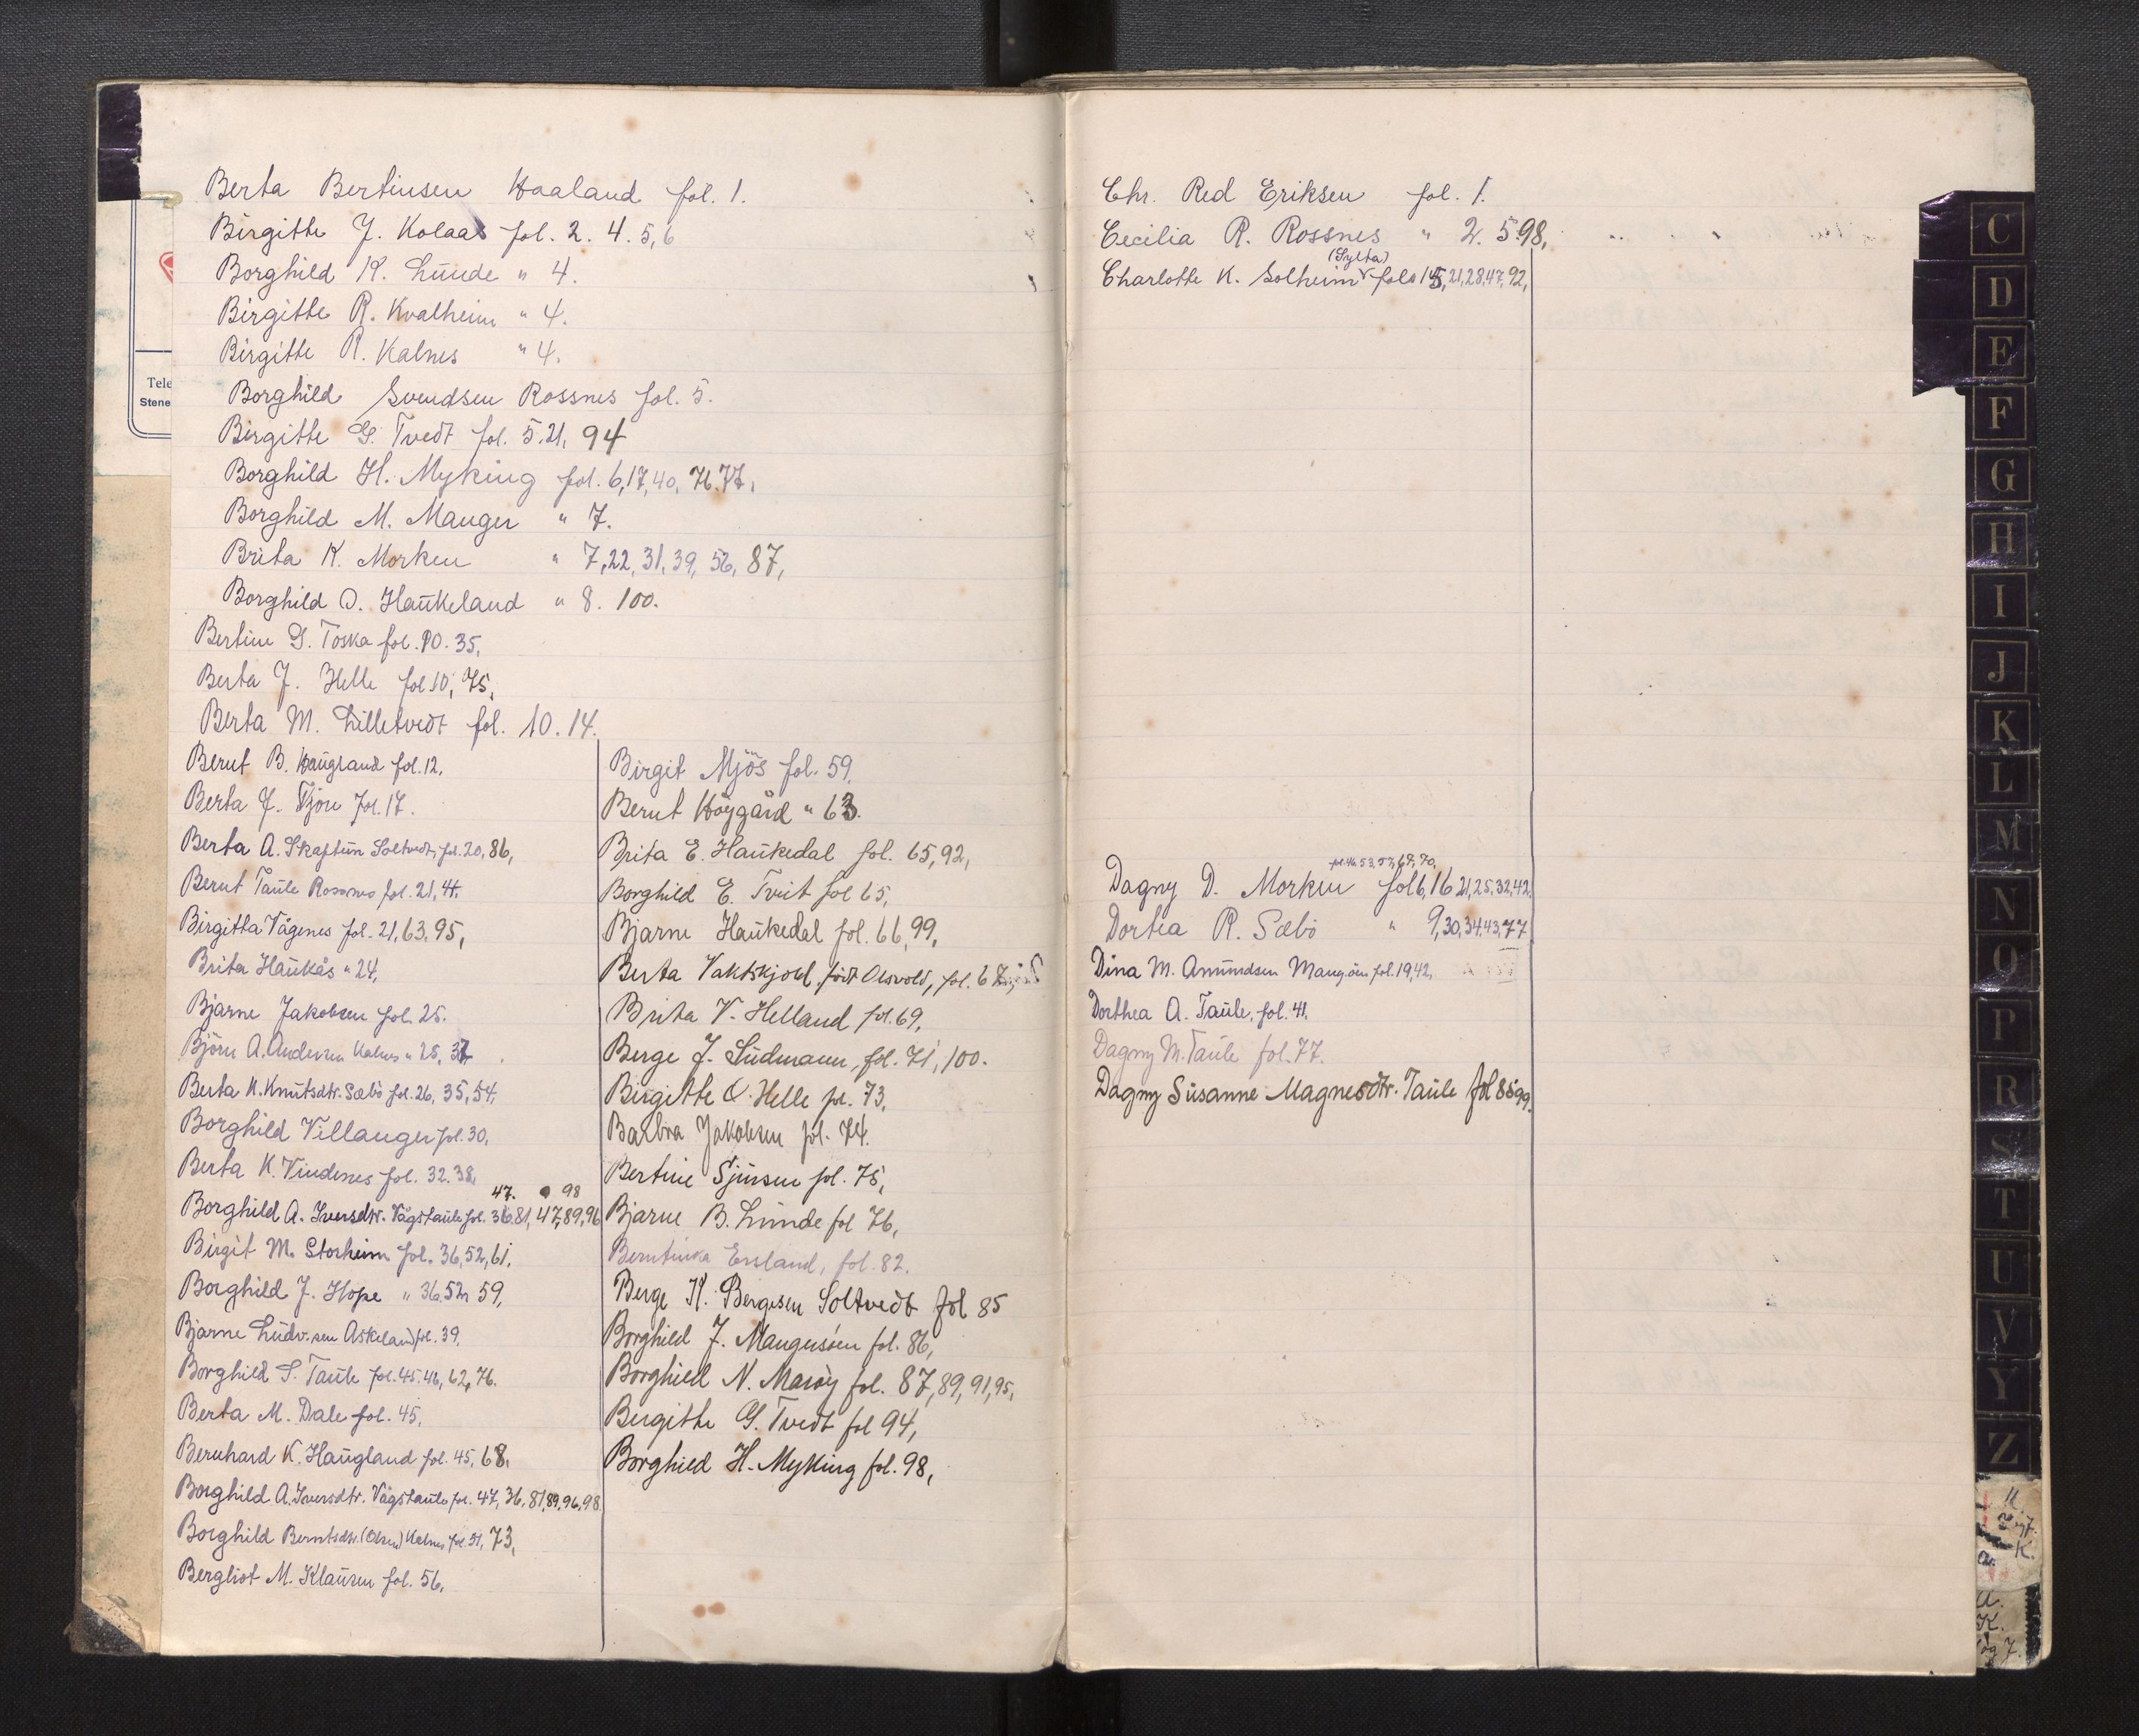 Berta Bertinsen Haaland fol. 1.
Birgitte J. Kolaas fol. 2. 4. 5, 6
Borghild K. Lunde " 4.
Birgitte R. Kvalheim " 4.
Birgitte R. Kalnes " 4.
Borghild Svendsen Rossnes fol. 5.
Birgitte G. Tvedt fol. 5. 21, 94
Borghild H. Myking fol. 6, 17, 40, 76. 77,
Borghild M. Manger " 7.
Brita K. Morken " 7, 22, 31, 39, 56, 87,
Borghild O. Haukeland " 8. 100.
Bertine S. Toska fol. 10. 35,
Berta J. Helle fol 10, 75,
Berta M. Lilletvedt fol. 10. 14.
Berut B. Haugland fol. 12.
Berta J. Tjore fol. 17.
Berta A. Skaftun Soltvedt, fol. 20, 86,
Berut Taule Rossnes fol. 21, 41.
Birgitta Vågenes fol. 21, 63, 95,
Brita Haukås " 24,
Bjarne Jakobsen fol. 25.
Björn A. Andersen Kalnes " 25, 37
Berta K. Knutsdtr. Sæbö fol. 26, 35, 54,
Borghild Villanger fol. 30,
Berta K. Vindenes fol. 32. 38,
47. 98
Borghild A. Iversdtr. Vågstaule fol. 36, 81, 47, 89, 96
Birgit M. Storheim fol. 36, 52, 61,
Borghild J. Hope " 36. 52, 59,
Bjarne Ludv.sen Askeland fol. 39.
Borghild S. Taule fol. 45. 46, 62, 76.
Berta M. Dale fol. 45,
Bernhard K. Haugland fol. 45, 68,
Borghild A. Iversdtr. Vågstaule fol. 47, 36, 81, 89, 96, 98
Borghild Berntsdtr. (Olsen) Kalnes fol. 51, 73,
Bergliot M. Klausen fol. 56,
Birgit Mjös fol. 59.
Berut Höygård " 63.
Brita E. Haukedal fol. 65, 92,
Borghild E. Tveit fol 65,
Bjarne Haukedal fol. 66, 99,
Berta Vaktskjold, født Olsvold, fol. 67
Brita V. Helland fol. 69,
Berge J. Ludmann, fol. 71, 100.
Birgitte O. Helle fol. 73,
Barbra Jakobsen fol. 74.
Bertine Sjursen fol. 75,
Bjarne B. Lunde fol 76,
Berntinka Ersland, fol. 82.
Berge K. Bergesen Soltvedt fol 85
Borghild J. Mangersöen fol. 86,
Borghild N. Maröy fol. 87, 89, 91, 95,
Birgitte G. Tvedt fol 94,
Borghild H. Myking fol. 98,
Tele
Stene
Chr. Red Eriksen fol. 1.
Cecilia R. Rossnes " 2. 5. 98,
(Sylta)
Charlotte K. Solheim fol. 14, 5, 21, 28, 47, 92,
fol. 46. 53, 57, 67, 70,
Dagny D. Morken fol 6, 16 21, 25, 32, 42.
Dortea R. Sæbö " 9, 30, 34, 43, 77
Dina M. Amundsen Mangöen fol. 19, 42,
Dorthea A. Taule, fol. 41.
Dagny M. Taule fol. 77.
Dagny Susanne Magnesdtr. Taule fol 85 99.
C
D
E
F
G
H
I
J
K
L
M
N
O
P
R
S
T
U
V
Y
Z